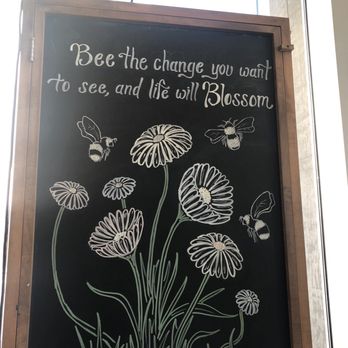 Bee the change you want
to see, and life will Blossom